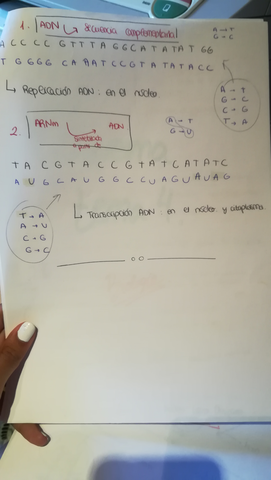 1. ADN → Secuencia complementaria
A → T
G → C
A C C C C G T T T A G G C A T A T A T G G
T G G G G C A A A T C C G T A T A T A C C
↳ Replicación ADN: en el núcleo.
A → T
G → C
C → G
T → A
2. ARNm ADN
Sintetizado a partir de
A → T
G → U
T A C G T A C C G T A T C A T A T C
A U G C A U G G C C U A G U A U A G
T → A
A → U
C → G
G → C
↳ Transcripción ADN: en el núcleo y citoplasma